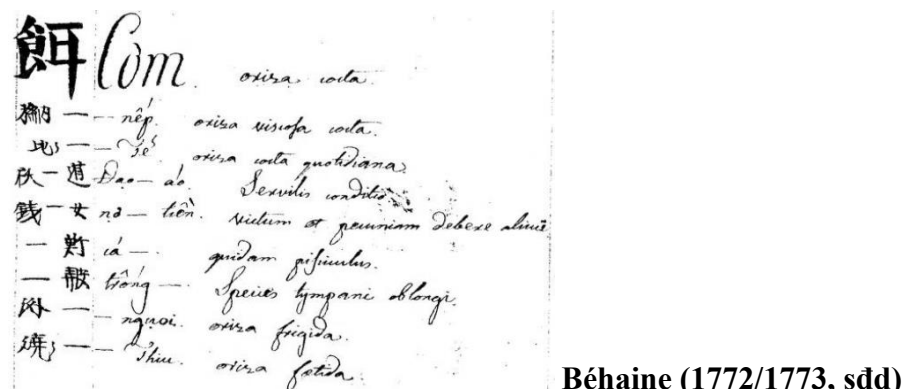 餌 Cơm. oriza cocta.
— — nếp. oriza viscosa cocta.
— — tẻ. oriza cocta quotidiana.
— 道 Đạo — áo. Servilis conditio.
錢 — 女 nợ — tiền. victum et pecuniam debere alicui
— cá —. quidam pisciculus.
— trống —. Species tympani oblongi.
— — nguọi. oriza frigida.
— — Thiu. oriza fœtida.
Béhaine (1772/1773, sđd)